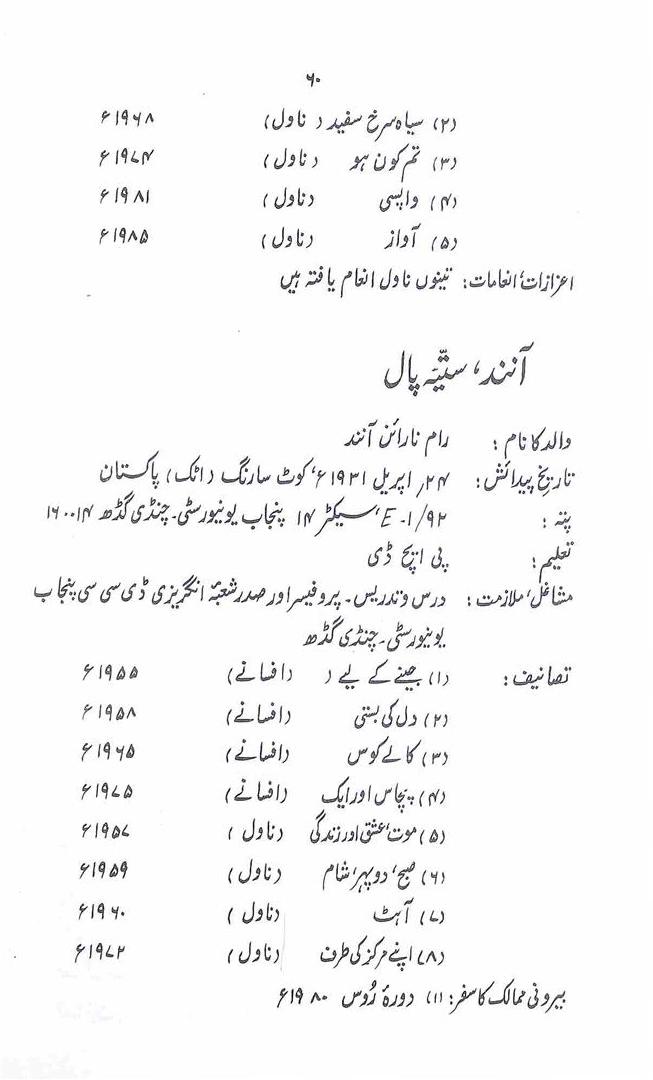 ۶۰
(۲) سیاہ سرخ سفید (ناول) ۱۹۶۸ء
(۳) تم کون ہو (ناول) ۱۹۷۴ء
(۴) واپسی (ناول) ۱۹۸۱ء
(۵) آواز (ناول) ۱۹۸۵ء
اعزازات، انعامات: تینوں ناول انعام یافتہ ہیں
آنند، ستیّہ پال
والد کا نام: رام نارائن آنند
تاریخ پیدائش: ۲۴ اپریل ۱۹۳۱ء، کوٹ سارنگ (اٹک) پاکستان
پتہ: E-۱/۹۲، سیکٹر ۱۴ پنجاب یونیورسٹی۔ چنڈی گڈھ ۱۶۰۰۱۴
تعلیم: پی ایچ ڈی
مشاغل، ملازمت: درس و تدریس۔ پروفیسر اور صدر شعبۂ انگریزی ڈی سی سی پنجاب
یونیورسٹی۔ چنڈی گڈھ
تصانیف: (۱) جینے کے لیے (افسانے) ۱۹۵۵ء
(۲) دل کی بستی (افسانے) ۱۹۵۸ء
(۳) کالے کوس (افسانے) ۱۹۶۵ء
(۴) پچاس اور ایک (افسانے) ۱۹۷۵ء
(۵) موت، عشق اور زندگی (ناول) ۱۹۵۷ء
(۶) صبح، دوپہر، شام (ناول) ۱۹۵۹ء
(۷) آہٹ (ناول) ۱۹۶۰ء
(۸) اپنے مرکز کی طرف (ناول) ۱۹۷۲ء
بیرونی ممالک کا سفر: (۱) دورۂ رُوس ۱۹۸۰ء